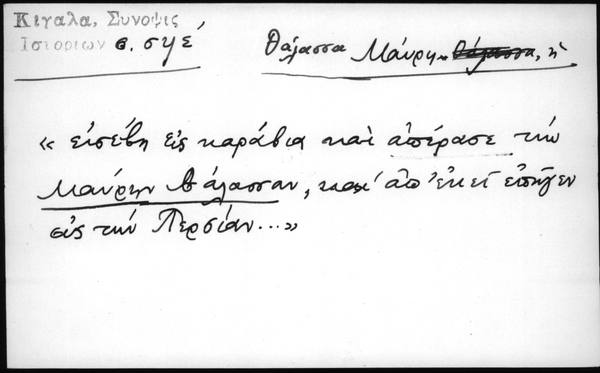 Κιγαλα, Συνοψις
Ιστοριων σ. σγέ
Θάλασσα Μαύρη θάλασσα, ἡ
« εἰσέβη εἰς καράβια καὶ ἀπέρασε τὴν
Μαύρην θάλασσαν, καὶ ἀπ' ἐκεῖ ἐπῆγεν
εἰς τὴν Περσίαν...»